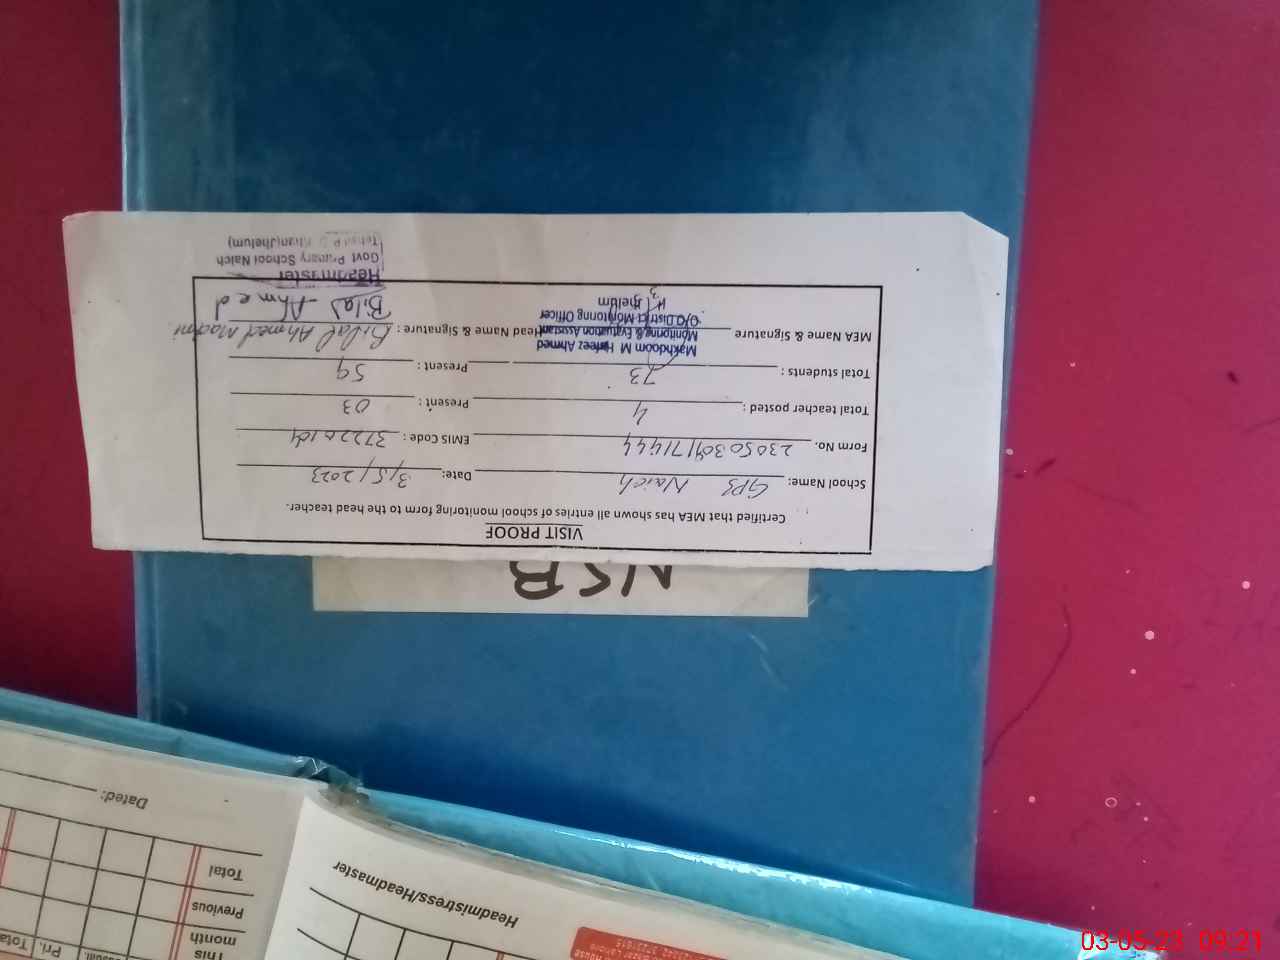 VISIT PROOF
Certified that MEA has shown all entries of school monitoring form to the head teacher.
School Name: GPS Naich Date: 3/5/2023
Form No. 23050309171444 EMIS Code :
Total teacher posted : 4 Present : 03
Total students : 73 Present : 59
MEA Name & Signature Head Name & Signature : Bilal Ahmed
Makhdoom M Hafeez Ahmed
Monitoring & Evaluation Assistant
O/O District Monitoring Officer
Jhelum
Bilal Ahmed
Headmaster
Govt Primary School Naich
Tehsil P.D. Khan(Jhelum)
NSB
Headmistress/Headmaster
This
month
Previous
Total
Pri.
Total
Dated:
03-05-23 09:21